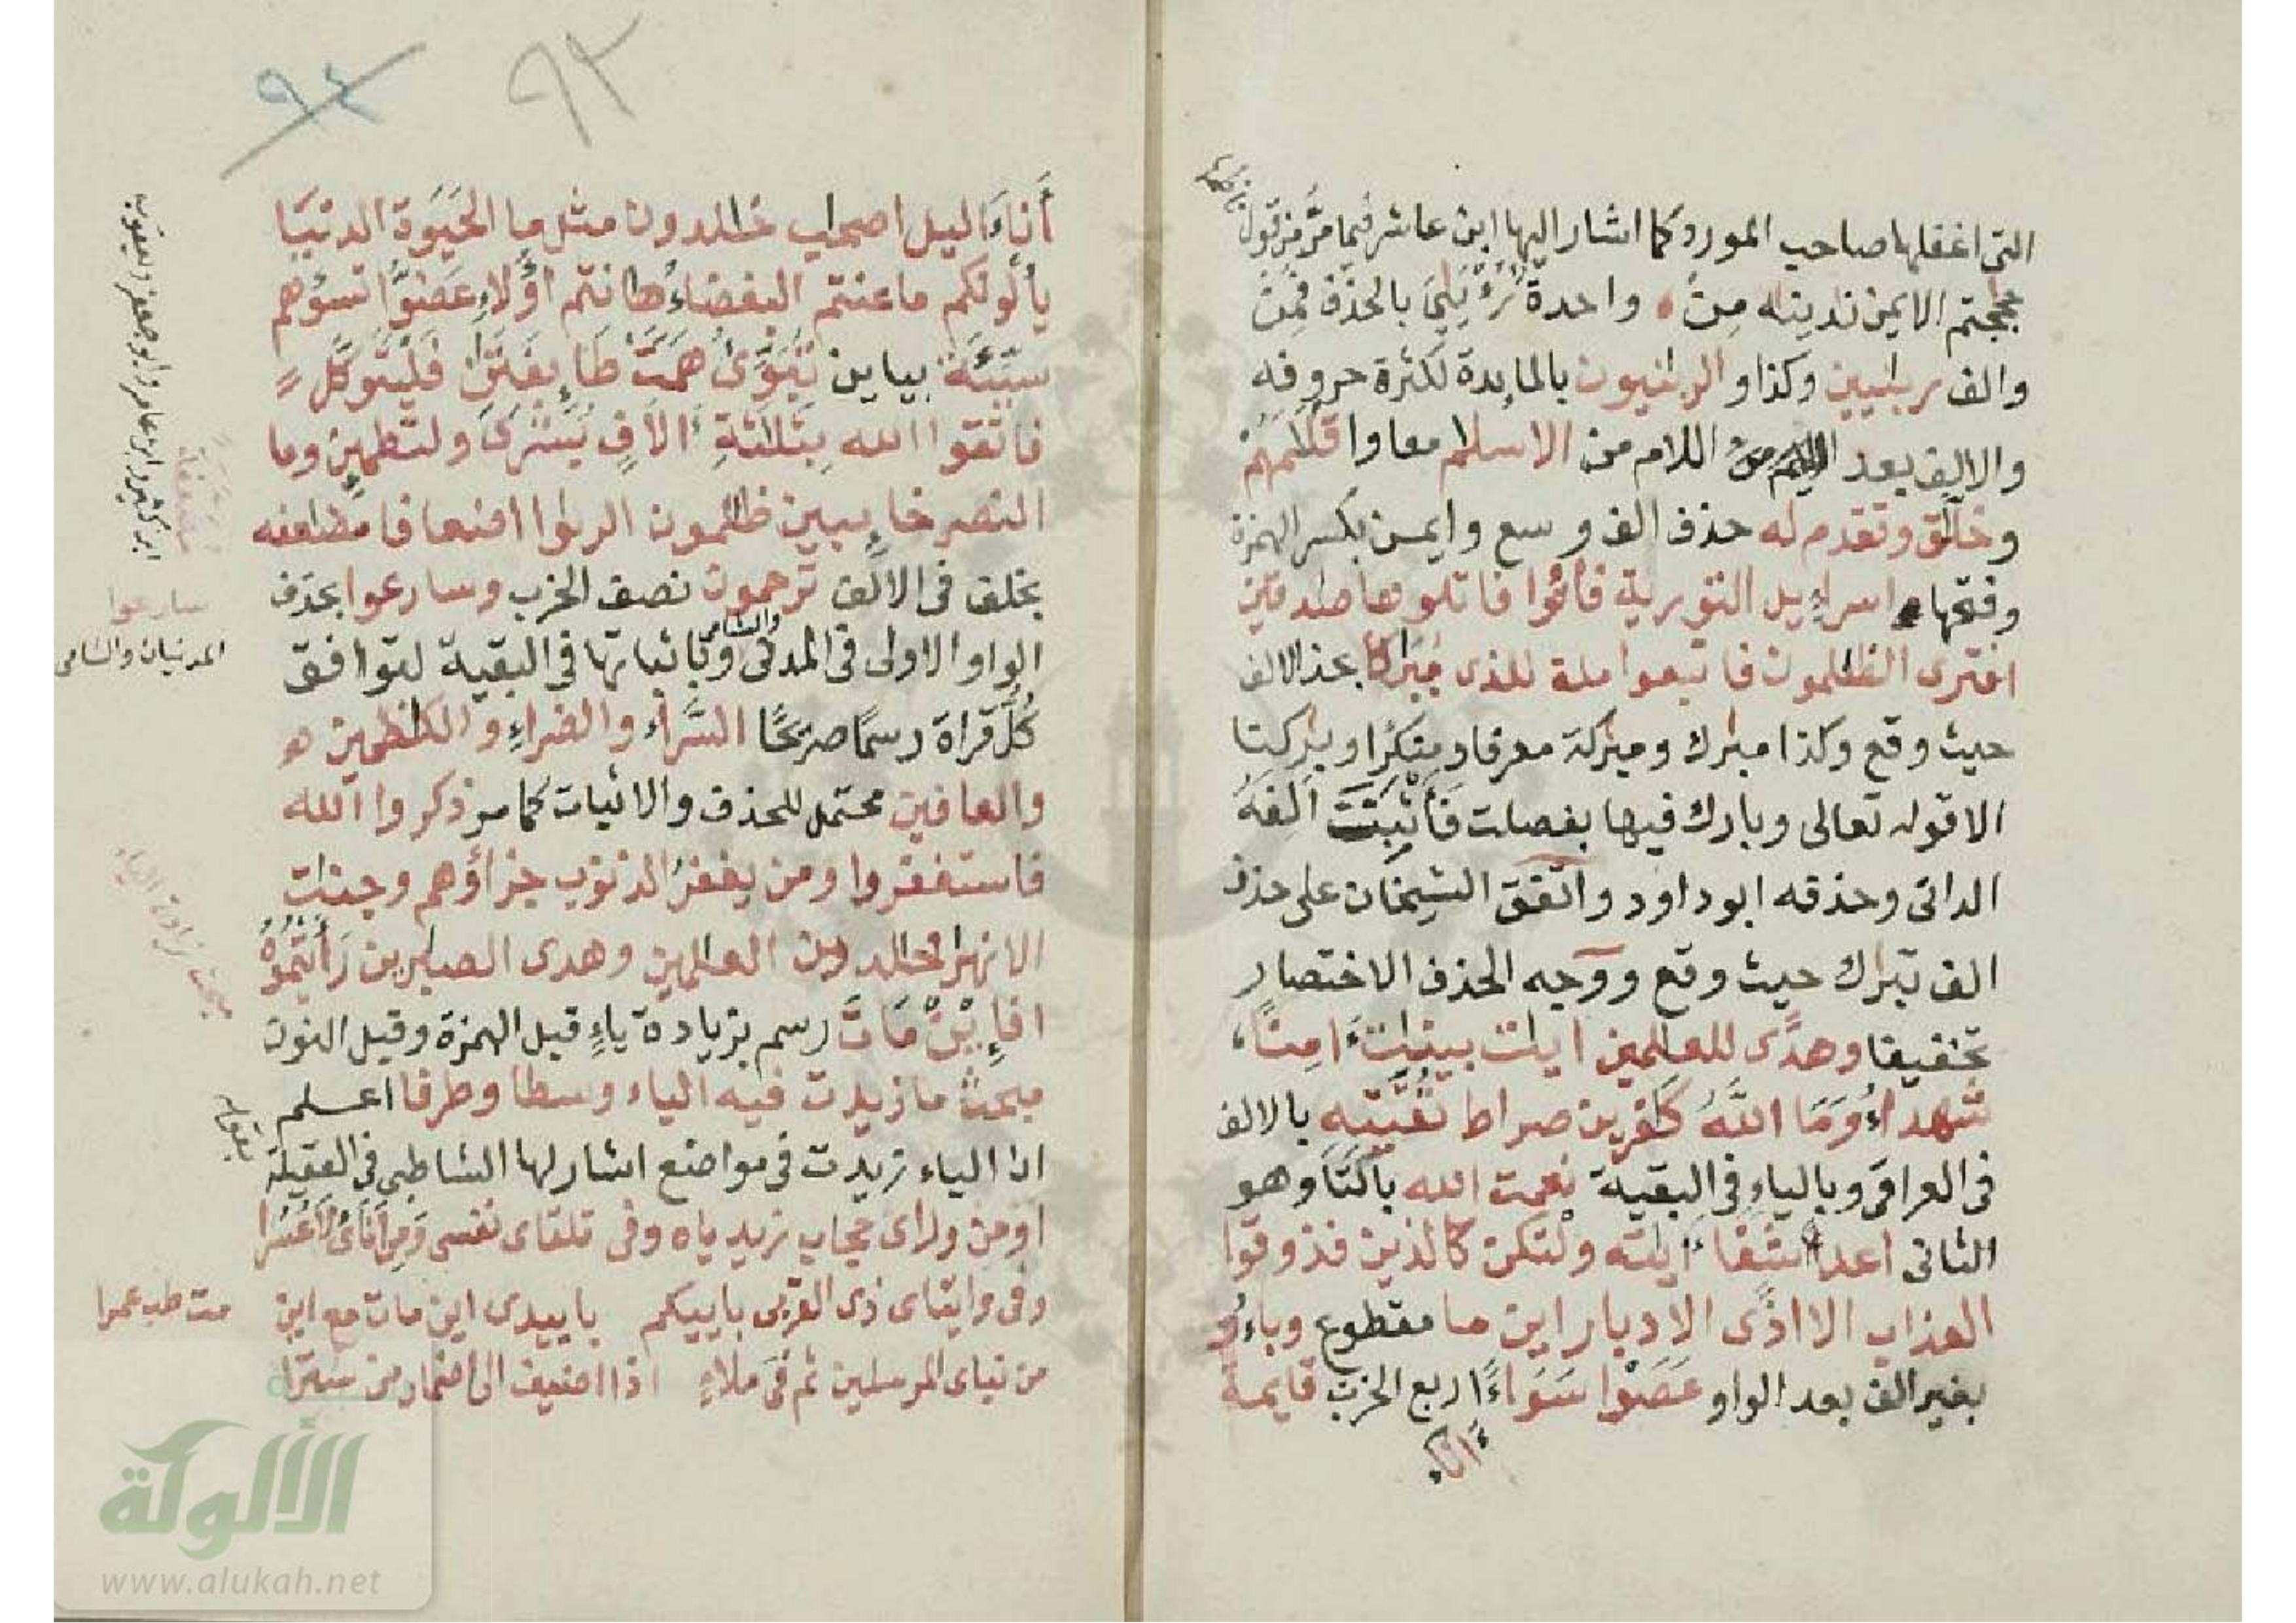 التى اغفلها صاحب المورد كما اشار اليها ابن عاشر فيما مر من قوله
الايمن ندينه مِنْ واحدة بالحذف فمن
والف ربـٰنيين وكذا والربـٰنيون بالمايدة لكثرة حروفه
والالف بعد اللام من الاسلـٰم معا وا
وخلـٰق وتقدم له حذف الف وسع وايمـن بكسر الهمزة
وفتحها اسراءيل التوريـة فأتوا فاتلوها صـٰدقين
افترى الظـٰلمون فاتبعوا ملة للذى مبـٰركا بحذ الالف
حيث وقع وكذا مبـٰرك ومبـٰركة معرفا ومنكرا وبـٰركنا
الا قوله تعالى وبارك فيها بفصلت فَأَثْبَتَ اَلِفَهُ
الدانى وحذفه ابو داود واتفق الشيخان على حذف
الف تبـٰرك حيث وقع ووجه الحذف الاختصار
تخفيفا وهدًى للعـٰلمين ايـٰت بينـٰت ءامِنًا
شهداءُ وَمَا اللَّهُ كـٰفرين صراط تقـٰته بالالف
فى العراقى وبالياءِ فى البقية نعمت الله بالتَّا وهو
الثانى اعداءً شَفَا ءايـٰته ولْتكن كالذين فذوقوا
العذاب الا اذًى الادبار اين ما مقطوع وباءُو
بغير الف بعد الواو عَصَوْا سَوَاءً ربع الحزب قايمة
ءانا
٩٣
٩٤
أَنَاءَ اليل اصحـٰب خـٰلدون مثل ما الحَيَوٰة الدنْيَا
يألونكم ما عنتم البغضاءُ هـٰانتم أُولاءِ عَضُّوا تسؤهم
سيّئَة بيايين تُبَوِّئُ هَمَّتْ طَايفتَـٰن فَلْيَتَوَكَّل
فاتقوا الله بِثَلـٰثَةِ ءالافٍ بُشْرَىٰ ولتطمئن وما
النصر خايبين ظـٰلمون الربوٰا اضعافا مضـٰعفه
بخلف فى الالف ترحمون نصف الحزب وسارعوا بحذف
الواو الاولى فى المدنى والشامى وباثباتها فى البقية لتوافق
كُلَّ قراة رسمًا صريحًا السَّرآءِ والضراءِ والكـٰظمين هو
والعافين محتمل للحذف والاثبات كما مر ذكروا الله
فاستغفروا ومن يغفرُ الذنوب جزاؤهم وجنـٰت
الانهـٰر خـٰلدين العـٰلمين وهدى الصـٰبرين رَأَيْتُمُوهُ
افَإِيْن مَّاتَ رسم بزيادة ياءٍ قبل الهمزة وقبل النون
مبحث ما زيدت فيه الياء وسطا وطرفا اعـلم
ان الياء زيدت فى مواضع اشار لها الشاطبى فى العقيلة
او من وراى حجاب زيد ياه وفى تلقاى نفسى وَمِنْ ءَانَاىِٕ لَا عُسُرَا
وفى وايتاى ذى القربى باييكم باييد ان مات مع ان
من نباى المرسلين ثم فى ملاءٍ اذا اضيف الى اضمار من سترا
ابن كثير وابن عامر وابو جعفر ويعقوب
سارعوا
المدنيان والشامى
مبحث زيادة الياء
مت طب عمرا
الألوكة
www.alukah.net